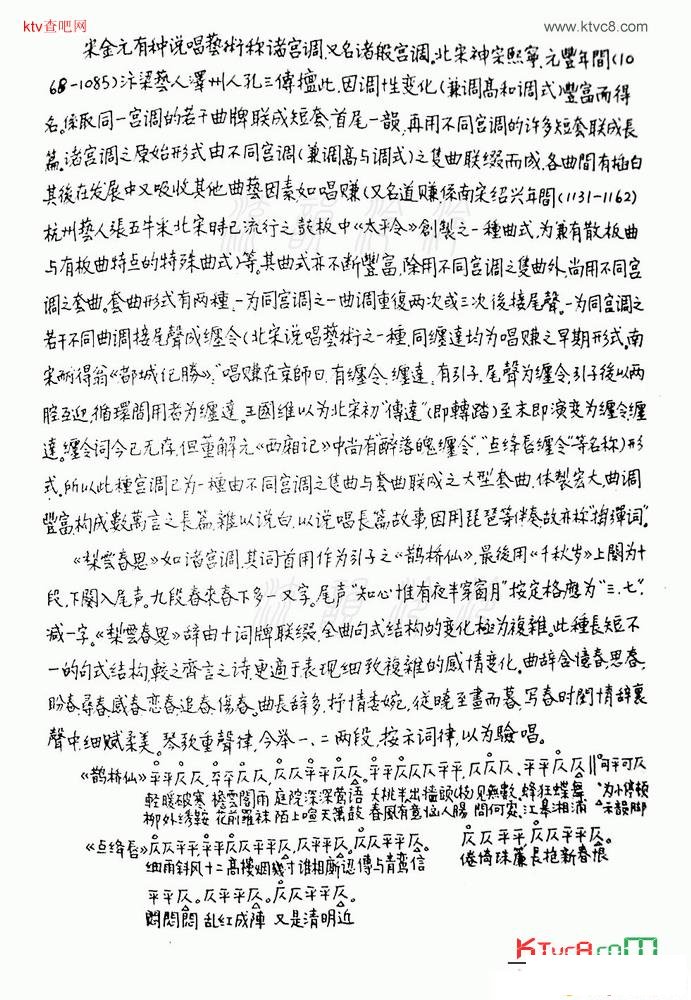 ktv查吧网
www.ktvc8.com
宋金元有种说唱藝術称诸宫调,又名诸般宫调。北宋神宗熙寧,元豐年間(10
68-1085)汴梁藝人澤州人孔三傳擅此,因调性变化(兼调高和调式)豐富而得
名。係取同一宫调的若干曲牌联成短套,首尾一韻,再用不同宫调的许多短套联成長
篇。诸宫调之原始形式由不同宫调(兼调高与调式)之隻曲联缀而成,各曲間有插白
其後在发展中又吸收其他曲藝因素,如唱赚(又名道赚係南宋绍兴年間(1131-1162)
杭州藝人張五牛采北宋時已流行之鼓板中《太平令》創製之一種曲式,为兼有散板曲
与有板曲特点的特殊曲式)等。其曲式亦不断豐富,除用不同宫调之隻曲外,尚用不同宫
调之套曲。套曲形式有两種,一为同宫调之一曲调重復两次或三次後接尾聲。一为同宫调之
若干不同曲调接尾聲成缠令(北宋说唱藝術之一種,同缠達均为唱赚之早期形式。南
宋耐得翁《都城纪勝》:"唱赚在京師日,有缠令、缠達,有引子、尾聲为缠令,引子後以两
腔互迎,循環間用者为缠達。王國维以为北宋初"傳達"(即轉踏)至末即演变为缠令缠
達。缠令词今已无存,但董解元《西厢记》中尚有"醉落魄缠令","点绛唇缠令"等名称)形
式。所以此種宫调已为一種由不同宫调之隻曲与套曲联成之大型套曲,体製宏大,曲调
豐富,构成數萬言之長篇,雜以说白,以说唱長篇故事,因用琵琶等伴奏故亦称"搊彈词"。
《梨雲春思》如诸宫调,其词首用作为引子之《鹊桥仙》,最後用《千秋岁》上闋为十
段,下闋入尾声。九段春來春下多一又字。尾声"知心惟有夜半穿窗月"按定格應为"三、七",
减一字。《梨雲春思》辞由十词牌联缀,全曲句式结构的变化極为複雜。此種長短不
一的句式结構,較之齊言之诗,更適于表现细致複雜的感情变化。曲辞含憶春、思春、
盼春、尋春、感春、恋春、追春、傷春。曲長辞多,抒情委婉,從曉至晝而暮,写春时閨情辞裏
聲中,细腻柔美。琴歌重聲律,今举一、二两段,按示词律,以为驗唱。
《鹊桥仙》平平仄仄,平平仄仄,仄仄平平平仄。平平仄仄仄平平,仄仄仄平平仄仄。
輕暖破寒 檐雲閣雨 庭院深深鶯语 大桃半出墙頭(枝)见無數 蜂狂蝶舞
柳外绣鞍 花前羅袜 陌上喧天簫鼓 春風有意恼人腸 問何
《点绛唇》仄仄平平
细雨斜风十二高樓烟幾寸谁相廝認傳与青鸞信
仄仄平平,仄仄平平仄。
倦倚珠簾長抱新春恨
平平仄。仄平平仄。仄仄平平仄。
悶悶悶 乱红成陣 又是清明近
KTvc8.com